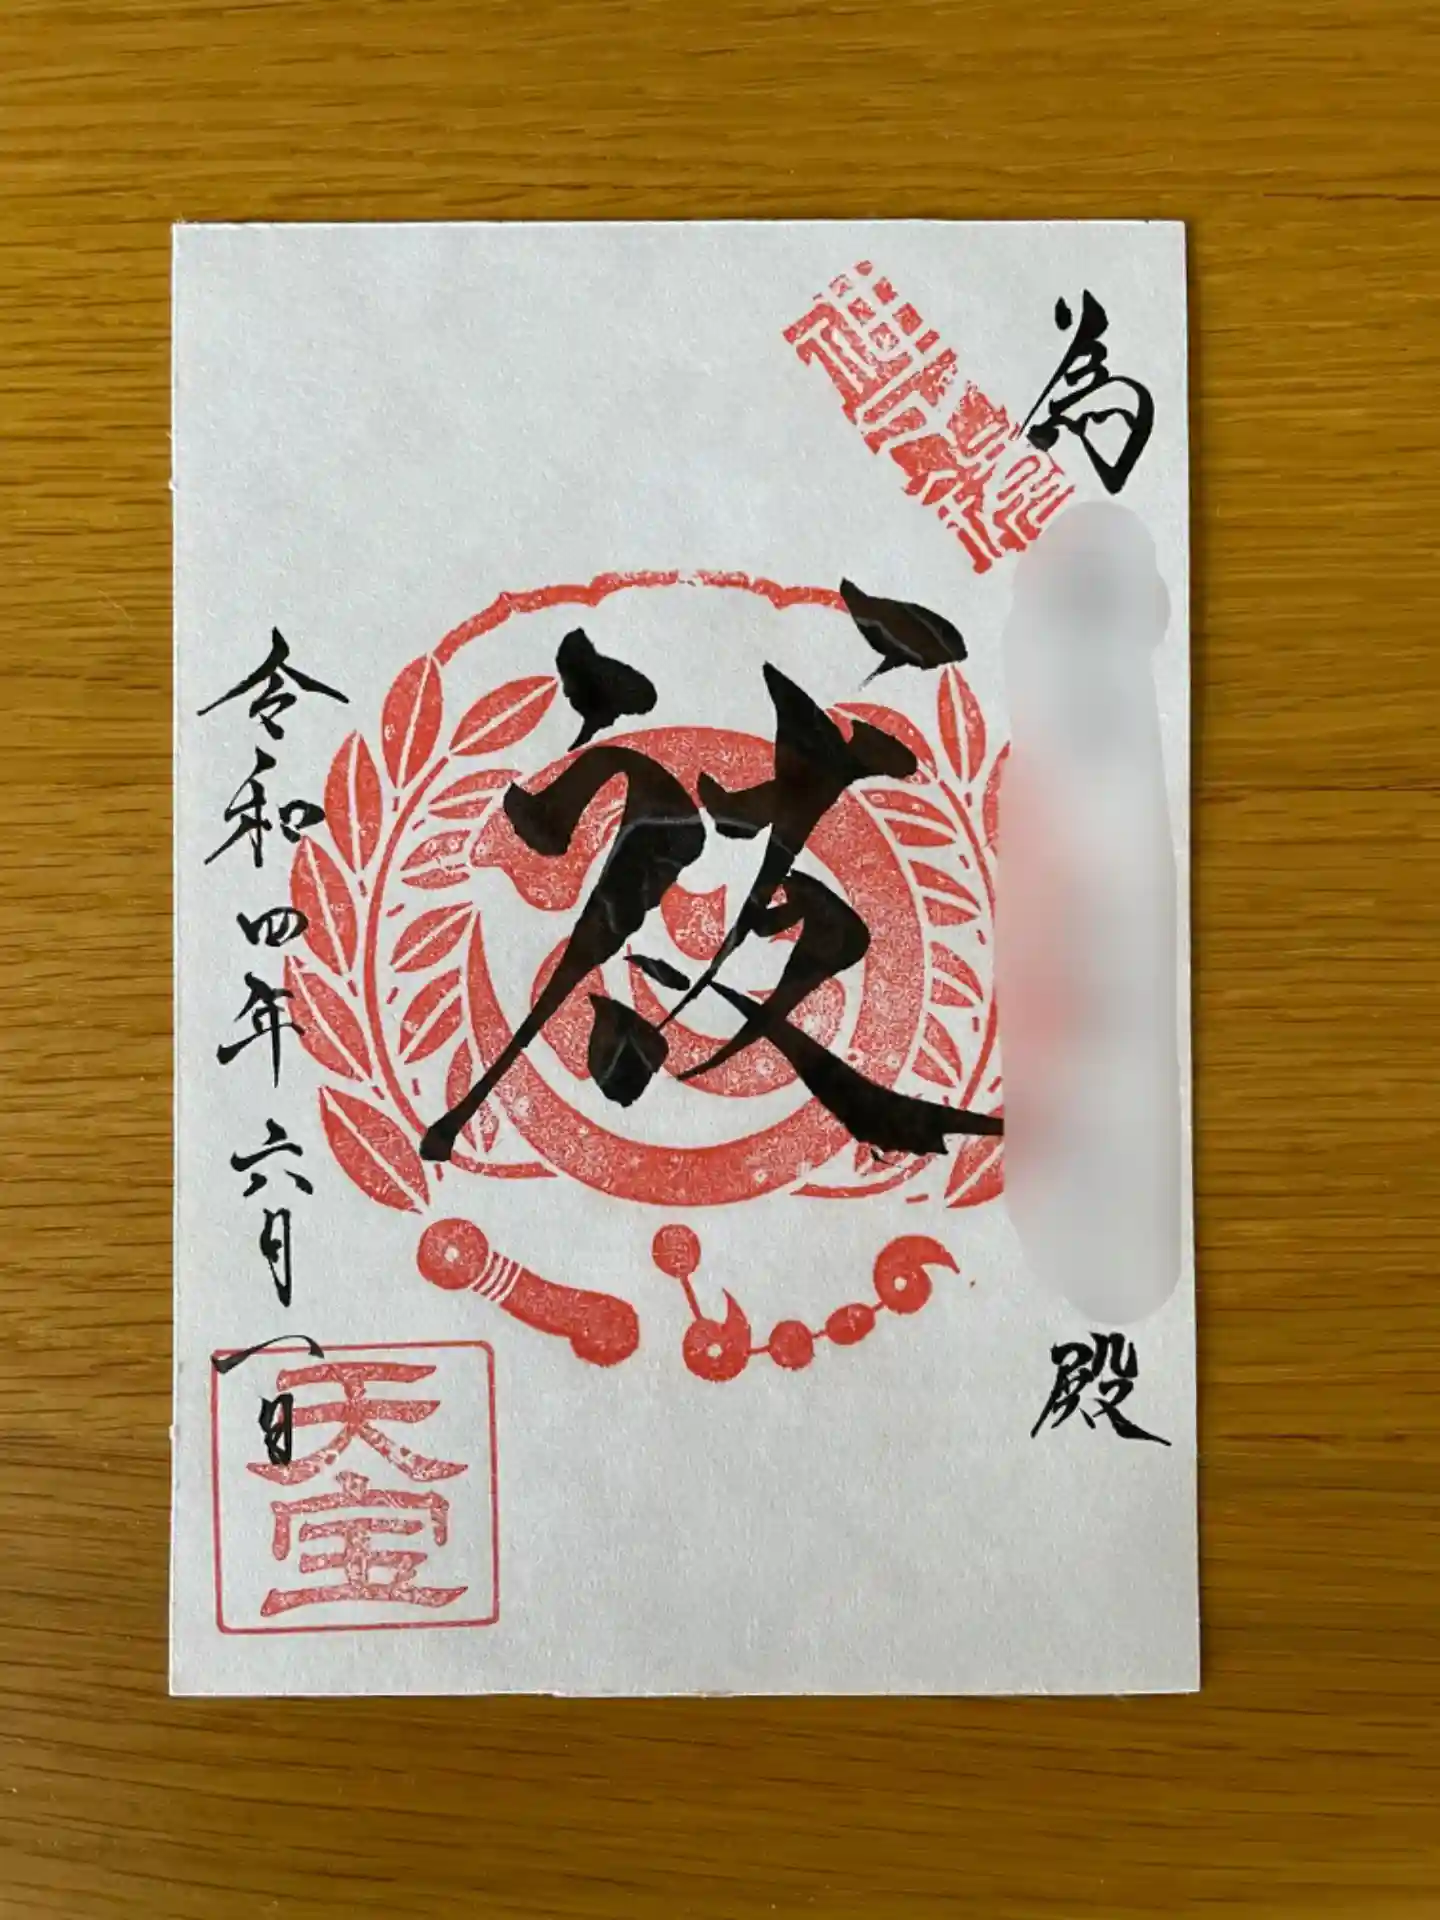 為
殿
祓
令和四年六月一日
天宝